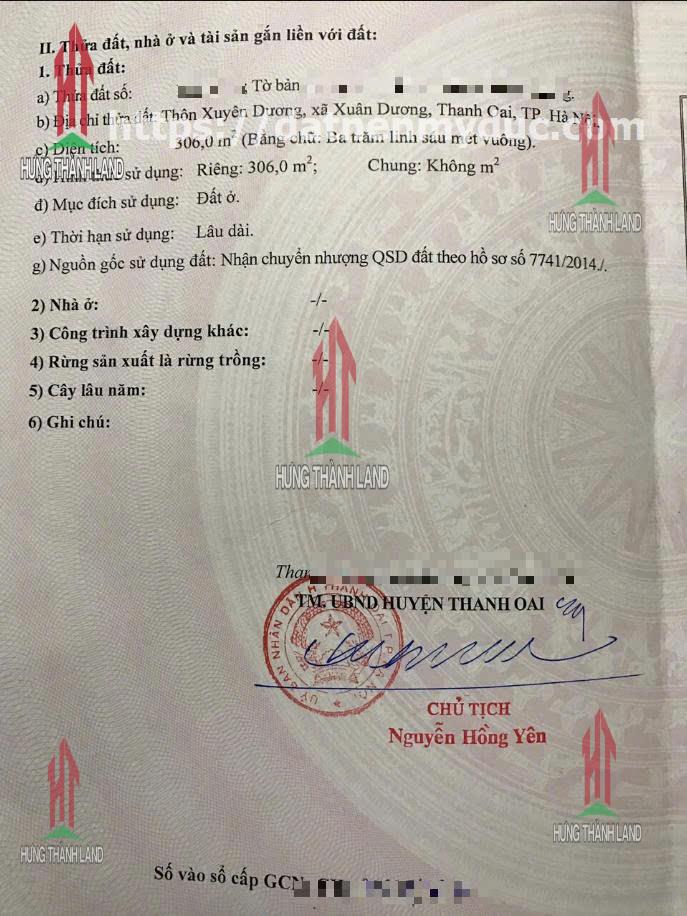 II. Thửa đất, nhà ở và tài sản gắn liền với đất:
1. Thửa đất:
a) Thửa đất số: Tờ bản
b) Địa chỉ thửa đất: Thôn Xuyên Dương, xã Xuân Dương, Thanh Oai, TP. Hà Nội.
https://datnenmyduc.com
c) Diện tích: 306,0 m² (Bằng chữ: Ba trăm linh sáu mét vuông).
sử dụng: Riêng: 306,0 m²; Chung: Không m²
HƯNG THÀNH LAND
đ) Mục đích sử dụng: Đất ở.
HƯNG THÀNH LAND
e) Thời hạn sử dụng: Lâu dài.
g) Nguồn gốc sử dụng đất: Nhận chuyển nhượng QSD đất theo hồ sơ số 7741/2014./.
2) Nhà ở: -/-
3) Công trình xây dựng khác: -/-
4) Rừng sản xuất là rừng trồng: -/-
5) Cây lâu năm: -/-
6) Ghi chú:
HƯNG THÀNH LAND
Than
TM. UBND HUYỆN THANH OAI
ỦY BAN NHÂN DÂN H THANH OAI T.P HÀ NỘI
CHỦ TỊCH
Nguyễn Hồng Yên
HƯNG THÀNH LAND
HƯNG THÀNH LAND
Số vào sổ cấp GCN